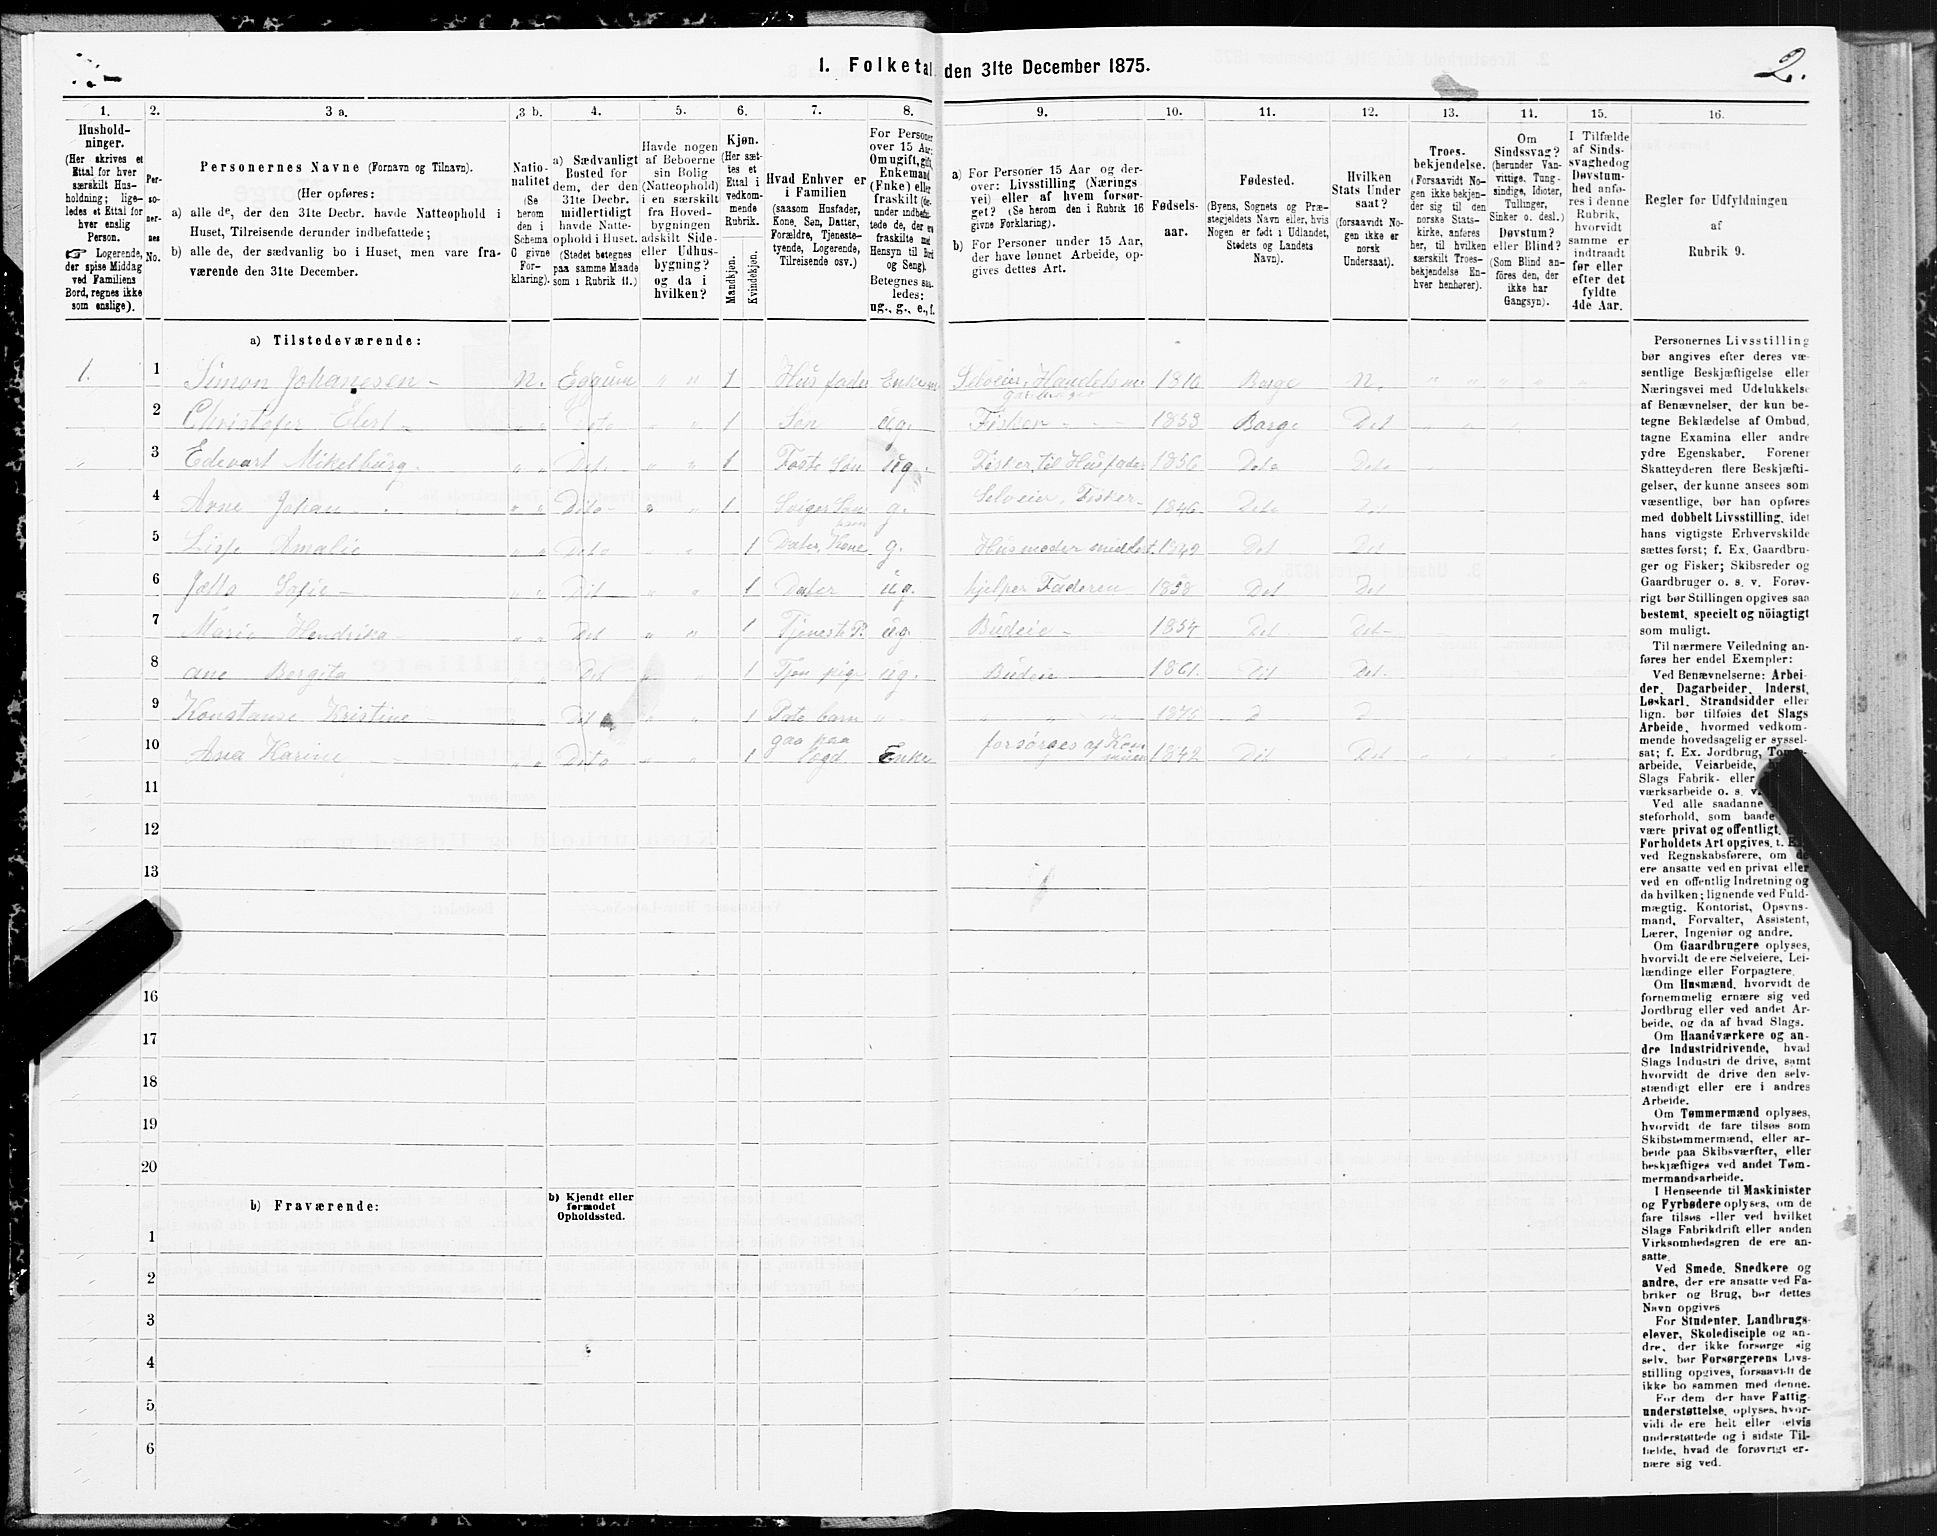 1. Folketal den 31te December 1875.
2.
1.
Hushold-
ninger.
(Her skrives et
Ettal for hver
særskilt Hus-
holdning; lige-
ledes et Ettal for
hver enslig
Person.
☞ Logerende,
der spise Middag
ved Familiens
Bord, regnes ikke
som enslige).
2.
Per-
so-
ner-
nes
No.
3 a.
Personernes Navne (Fornavn og Tilnavn).
(Her opføres:
a) alle de, der den 31te Decbr. havde Natteophold i
Huset, Tilreisende derunder indbefattede;
b) alle de, der sædvanlig bo i Huset, men vare fra-
værende den 31te December.
3 b.
Natio-
nalitet
(Se
herom
den i
Schema
G givne
For-
klaring).
4.
a) Sædvanligt
Bosted for
dem, der den
31te Decbr.
midlertidigt
havde Natte-
ophold i Huset.
(Stedet betegnes
paa samme Maade
som i Rubrik 11.)
5.
Havde nogen
af Beboerne
sin Bolig
(Natteophold)
i en særskilt
fra Hoved-
bygningen
adskilt Side-
eller Udhus-
bygning?
og da i
hvilken?
6.
Kjøn.
(Her sæt-
tes et
Ettal i
vedkom-
mende
Rubrik.
Mandkjøn.
Kvindekjøn.
7.
Hvad Enhver er
i Familien
(saasom Husfader,
Kone, Søn, Datter,
Forældre, Tjeneste-
tyende, Logerende,
Tilreisende osv.)
8.
For Personer
over 15 Aar:
Om ugift, gift,
Enkemand
(Enke) eller
fraskilt (der-
under indbefat-
tede de, der ere
fraskilte med
Hensyn til Bord
og Seng).
Betegnes saa-
ledes:
ug., g., e., f.
9.
a) For Personer 15 Aar og der-
over: Livsstilling (Nærings-
vei) eller af hvem forsør-
get? (Se herom den i Rubrik 16
givne Forklaring).
b) For Personer under 15 Aar,
der have lønnet Arbeide, op-
gives dettes Art.
10.
Fødsels-
aar.
11.
Fødested.
(Byens, Sognets og Præ-
stegjeldets Navn eller, hvis
Nogen er født i Udlandet,
Stedets og Landets
Navn).
12.
Hvilken
Stats Under-
saat?
(forsaavidt No-
gen ikke er
norsk
Undersaat).
13.
Troes-
bekjendelse.
(Forsaavidt No-
gen ikke bekjen-
der sig til den
norske Stats-
kirke, anføres
her, til hvilken
særskilt Troes-
bekjendelse En-
hver henhører).
14.
Om
Sindssvag?
(herunder Van-
vittige, Tung-
sindige, Idioter,
Tullinger,
Sinker o. desl.)
Døvstum?
eller Blind?
(Som Blind an-
føres den, der
ikke har
Gangsyn).
15.
I Tilfælde
af Sinds-
svaghed og
Døvstum-
hed anfø-
res i denne
Rubrik,
hvorvidt
samme er
indtraadt
før eller
efter det
fyldte
4de Aar.
16.
Regler for Udfyldningen
af
Rubrik 9.
a) Tilstedeværende:
1. 1 Simon Johanesen - N. Eggum " " 1 Hus fader Enkem. Selveier, Handelsm. 1816 Borge N. " " " "
gaardbruger
2 Christofer Elert - " " Dito " " 1 Søn ug. Fisker - - - 1853 Borge Det " " "
3 Edevart Mikelburg. " " Dito " " 1 Foste Søn ug. Fisker, til Husfader 1856 Deto Deto
4 Arne Johan - " " Dito - " " 1 Sviger Søn g. Selveier, Fisker - 1846 Deto Det
5 Lisje Amalie " " Deto " " 1 Dater, Kone g. Husmoder 1849 Det Det
6 Jætta Sofie - " " Dit " " 1 Dater ug. hjelper Faderen 1858 Det Det
7 Marie Hendrika " " Det " " 1 Tjeneste P. ug. Budeie - 1854 Det Det -
8 ane Bergita " " Det " " 1 Tjen pige ug. Budeie 1861. Dit Det.
9 Konstanse Kristine " " Dit " " 1 Pate barn " " " " 1875 D D
10 Ana Karine " " Dito " " 1 gaa paa Enke forsørges af Kom 1842 Dit Det " " " "
lægd munen
11
12
13
16
17
18
19
20
b) Fraværende:
b) Kjendt eller
formodet
Opholdssted.
1
2
3
4
5
6
Personernes Livsstilling
bør angives efter deres væ-
sentlige Beskjæftigelse eller
Næringsvei med Udelukkelse
af Benævnelser, der kun be-
tegne Beklædelse af Ombud,
tagne Examina eller andre
ydre Egenskaber. Forener
Skatteyderen flere Beskjæfti-
gelser, der kunne ansees som
væsentlige, bør han opføres
med dobbelt Livsstilling, idet
hans vigtigste Erhvervskilde
sættes først; f. Ex. Gaardbru-
ger og Fisker; Skibsreder og
Gaardbruger o. s. v. Forøv-
rigt bør Stillingen opgives saa
bestemt, specielt og nöiagtigt
som muligt.
Til nærmere Veiledning an-
føres her endel Exempler:
Ved Benævnelserne: Arbei-
der, Dagarbeider, Inderst,
Løskarl, Strandsidder eller
lign. bør tilføies det Slags
Arbeide, hvormed vedkom-
mende hovedsagelig er syssel-
sat; f. Ex. Jordbrug, Tom-
arbeide, Veiarbeide,
Slags Fabrik- eller
værksarbeide o. s. v.
Ved alle saadanne
steforhold, som baade
være privat og offentligt,
Forholdets Art opgives, t. E.
ved Regnskabsførere, om de
ere ansatte ved en privat eller
ved en offentlig Indretning og
da hvilken; lignende ved Fuld-
mægtig, Kontorist, Opsyns-
mand, Forvalter, Assistent,
Lærer, Ingeniør og andre.
Om Gaardbrugere oplyses,
hvorvidt de ere Selveiere, Lei-
lændinge eller Forpagtere.
Om Husmænd, hvorvidt de
fornemmelig ernære sig ved
Jordbrug eller ved andet Ar-
beide, og da af hvad Slags.
Om Haandværkere og an-
dre Industridrivende, hvad
Slags Industri de drive, samt
hvorvidt de drive den selv-
stændigt eller ere i andres
Arbeide.
Om Tømmermænd oplyses,
hvorvidt de fare tilsøs som
Skibstømmermænd, eller ar-
beide paa Skibsværfter, eller
beskjæftiges ved andet Tøm-
mermandsarbeide.
I Henseende til Maskinister
og Fyrbødere oplyses, om de
fare tilsøs eller ved hvilket
Slags Fabrikdrift eller anden
Virksomhedsgren de ere an-
satte.
Ved Smede, Snedkere og
andre, der ere ansatte ved Fa-
briker og Brug, bør dettes
Navn opgives
For Studenter, Landbrugs-
elever, Skoledisciple og an-
dre, der ikke forsørge sig
selv, bør Forsørgerens Livs-
stilling opgives, forsaavidt de
ikke bo sammen med denne.
For dem, der have Fattig-
understøttelse, oplyses, hvor-
vidt de ere helt eller delvis
understøttede og i sidste Til-
fælde, hvad de forøvrigt er-
nære sig ved.